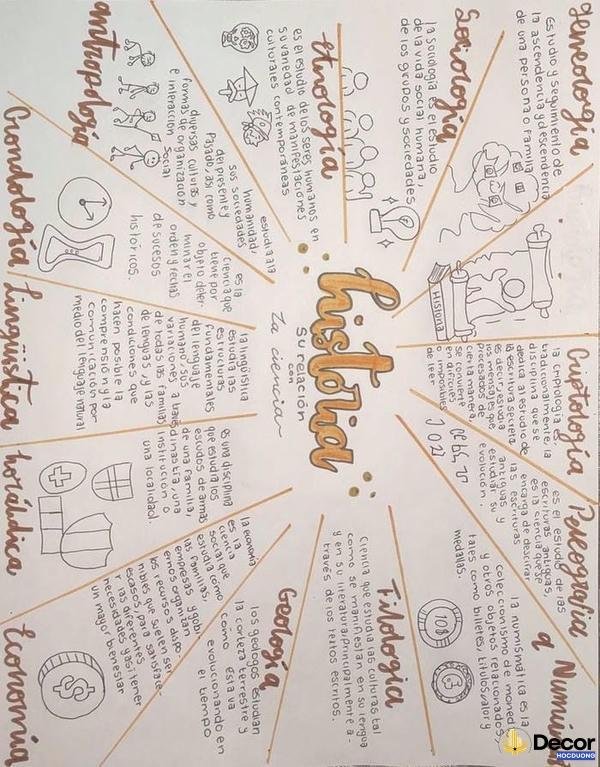 historia
su relación
con
La ciencia
Geneología
Estudio y seguimiento de
la ascendencia y descendencia
de una persona o familia
Sociología
la sociología es el estudio
de la vida social humana,
de los grupos y sociedades
Historia
etnología
es el estudio de los seres humanos en
su variedad de manifestaciones
culturales contemporáneas
antropología
estudia a la
humanidad,
sus sociedades
del presente y
Pasado, así como
diversas culturas y
formas de organización
e interacción Social
Cronología
es la
ciencia que
tiene por
objeto deter-
minar el
orden y fechas
de sucesos
históricos.
Lingüistica
la lingüística
estudia las
estructuras
fundamentales
del lenguaje
humano, sus
variaciones a través
de todas las familias
de lenguas, y las
condiciones que
hacen posible la
comprensión y la
comunicación por
medio del lenguaje natural
es una disciplina
que estudia los
escudos de armas
de una familia,
dinastía, una
institución o
una localidad.
Economía
la economía
es la
ciencia
social que
estudia como
las familias
empresas y gobi-
ernos organizan
los recursos dispo-
nibles que suelen ser
escasos, para satisface-
r las diferentes
necesidades y así tener
un mayor bienestar
$
Geología
los geólogos estudian
la corteza terrestre y
como esta va
evolucionando en
el tiempo
Filología
Ciencia que estudia las culturas tal
como se manifiestan en su lengua
y en su literatura, principalmente a-
través de los textos escritos.
la numismática es la
coleccionismo de moned
y otros objetos relacionados
tales como billetes, títulos valor y
medallas.
Paleografia
es el estudio de las
escrituras antiguas,
es la ciencia que se
encarga de descifrar
las escrituras
antiguas y
estudiar su
evolución.
Criptología
la criptología es,
tradicionalmente, la
disciplina que se
dedica al estudio de
la escritura secreta
es decir, estudia
los mensajes que
procesados de
cierta manera,
se convierte
en difíciles
o imposibles
de leer
Decor
HOCDUONG